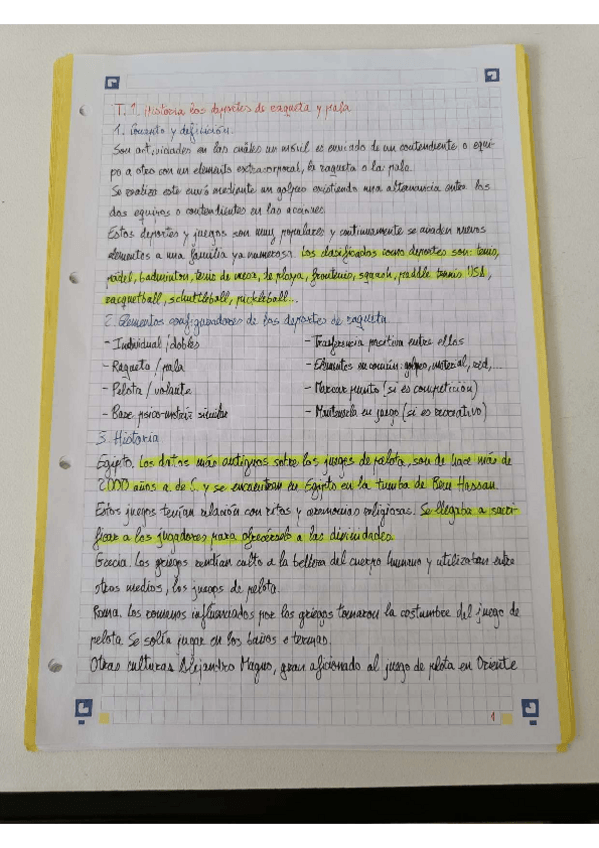 T.1. Historia los deportes de raqueta y pala
1. Concepto y definición.
Son actividades en las cuáles un móvil es enviado de un contendiente o equi-
po a otro con un elemento extracorporal, la raqueta o la pala.
Se realiza este envío mediante un golpeo existiendo una alternancia entre los
dos equipos o contendientes en las acciones.
Estos deportes y juegos son muy populares y continuamente se añaden nuevos
elementos a una familia ya numerosa. Los clasificados como deportes son: tenis,
pádel, badminton, tenis de mesa, de playa, frontenis, squash, paddle tennis USA,
racquetball, schuttleball, pickleball...
2. Elementos configuradores de los deportes de raqueta
- Individual / dobles
- Raqueta / pala
- Pelota / volante
- Base psico-motriz similar
- Trasferencia positiva entre ellos
- Elementos en común: golpeo, material, red,...
- Marcar punto (si es competición)
- Mantenerla en juego (si es recreativo)
3. Historia
Egipto. Los datos más antiguos sobre los juegos de pelota, son de hace más de
2000 años a. de C. y se encuentran en Egipto en la tumba de Beni Hassan.
Estos juegos tenían relación con ritos y ceremonias religiosas. Se llegaba a sacri-
ficar a los jugadores para ofrecérselo a las divinidades.
Grecia. Los griegos rendían culto a la belleza del cuerpo humano y utilizaban entre
otros medios, los juegos de pelota.
Roma. Los romanos influenciados por los griegos tomaron la costumbre del juego de
pelota. Se solía jugar en los baños o termas.
Otras culturas Alejandro Magno, gran aficionado al juego de pelota en Oriente
1